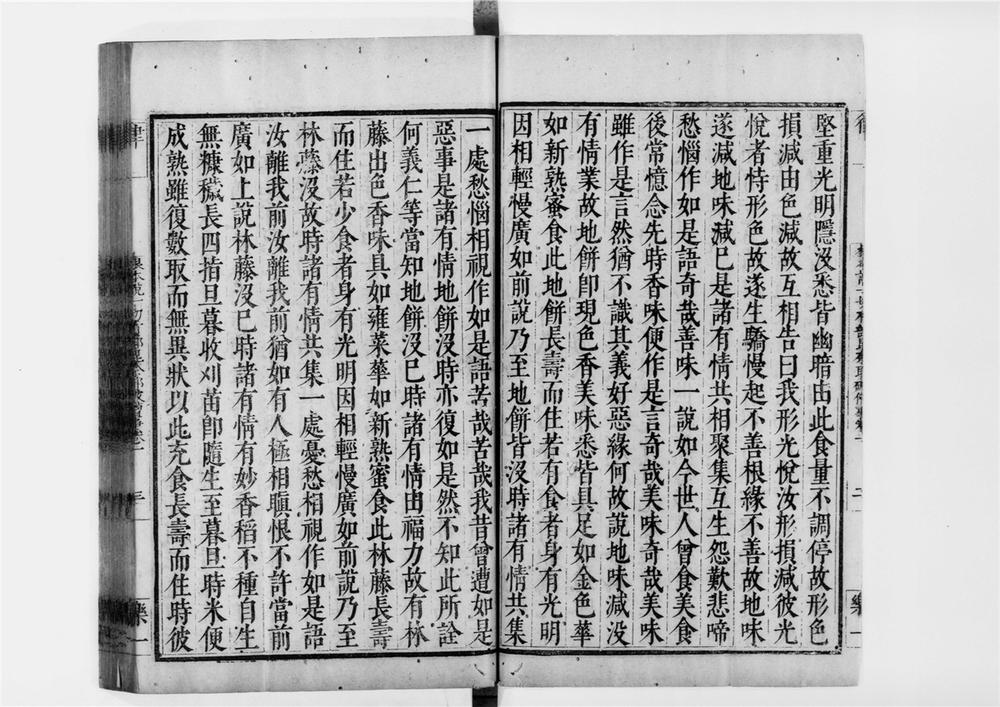 堅重光明隱沒悉皆幽暗由此食量不調停故形色
損減由色減故互相告曰我形光悅汝形損減彼光
悅者恃形色故遂生驕慢起不善根緣不善故地味
遂減地味減已是諸有情共相聚集互生怨歎悲啼
愁惱作如是語奇哉善味一說如今世人曾食美食
後常憶念先時香味便作是言奇哉美味奇哉美味
雖作是言然猶不識其義好惡緣何故說地味減沒
有情業故地餅卽現色香美味悉皆具足如金色華
如新熟蜜食此地餅長壽而住若有食者身有光明
因相輕慢廣如前說乃至地餅皆沒時諸有情共集
一處愁惱相視作如是語苦哉苦哉我昔曾遭如是
惡事是諸有情地餅沒時亦復如是然不知此所詮
何義仁等當知地餅沒已時諸有情由福力故有林
藤出色香味具如雍菜華如新熟蜜食此林藤長壽
而住若少食者身有光明因相輕慢廣如前說乃至
林藤沒故時諸有情共集一處憂愁相視作如是語
汝離我前汝離我前猶如有人極相瞋恨不許當前
廣如上說林藤沒已時諸有情有妙香稻不種自生
無糠穢長四指旦暮收刈苗卽隨生至暮旦時米便
成熟雖復數取而無異狀以此充食長壽而住時彼
律
三
樂一
二
樂一